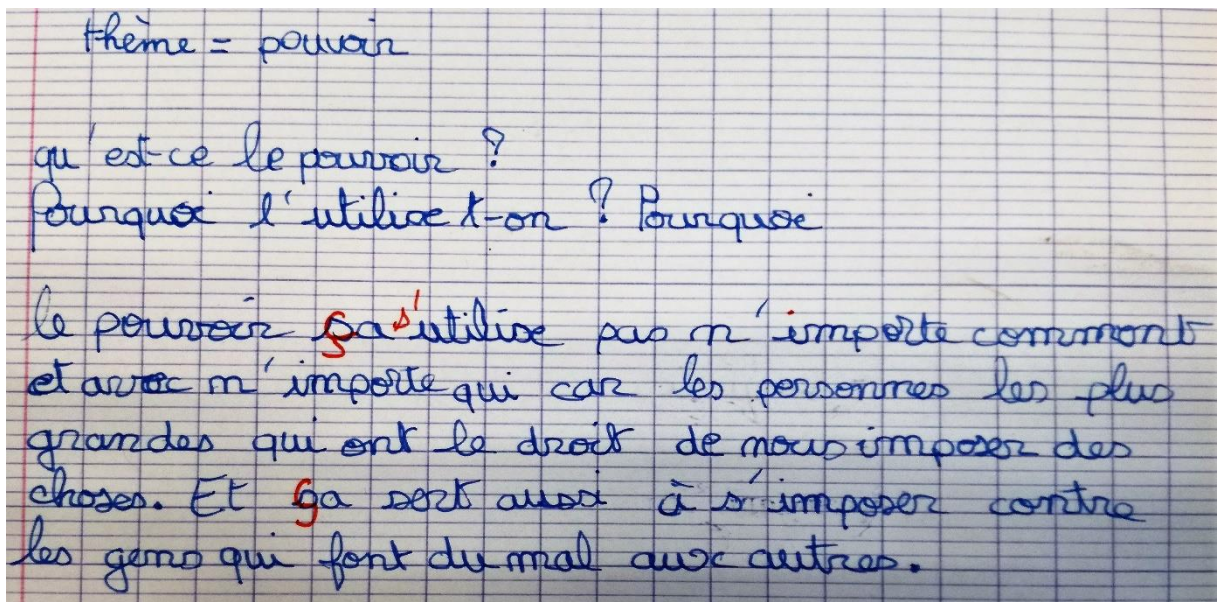 thème = pouvoir
qu'est-ce le pouvoir ?
Pourquoi l'utilise t-on ? Pourquoi
le pouvoir ça s'utilise pas n'importe comment
et avec n'importe qui car les personnes les plus
grandes qui ont le droit de nous imposer des
choses. Et ça sert aussi à s'imposer contre
les gens qui font du mal aux autres.